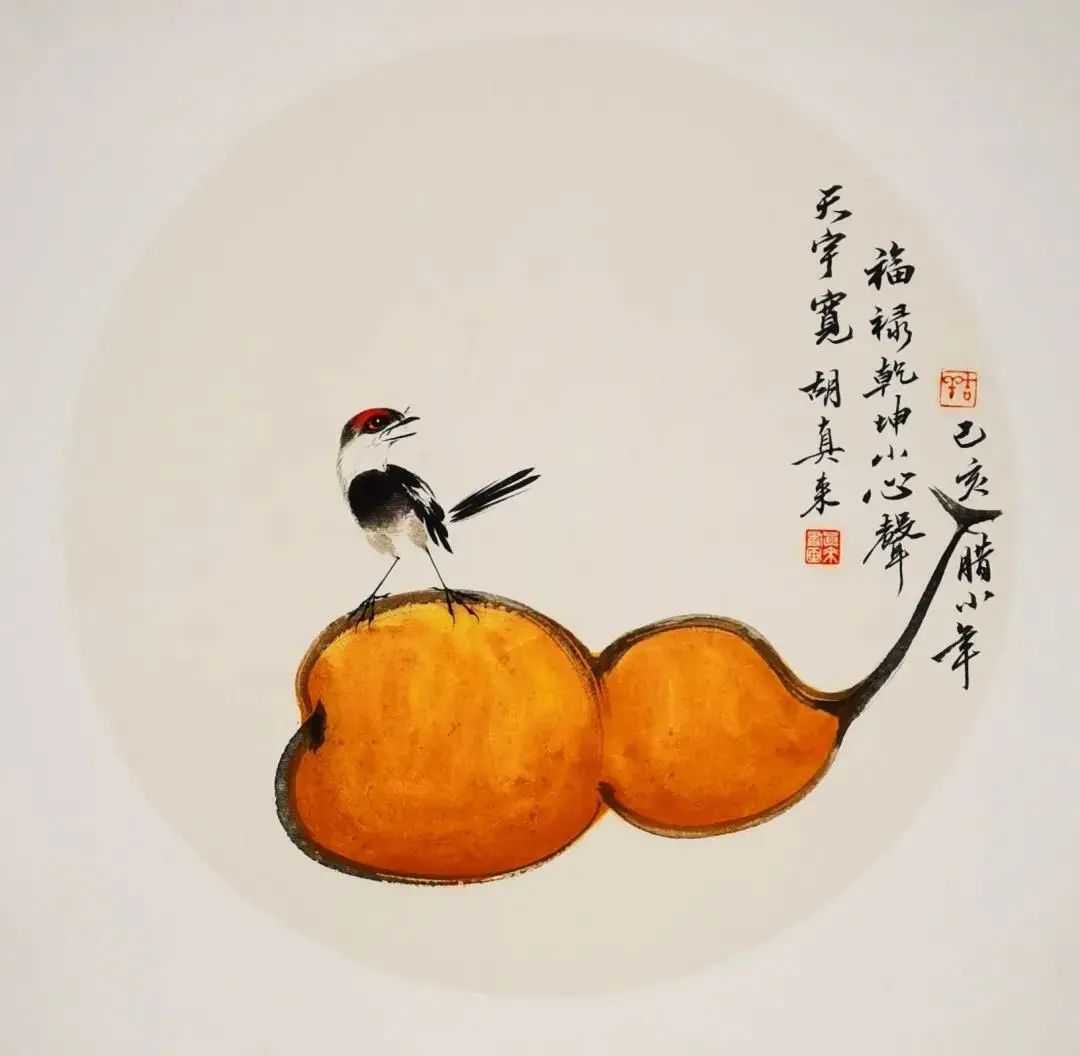 己亥腊小年
福禄乾坤小心聲
天宇寬 胡真来